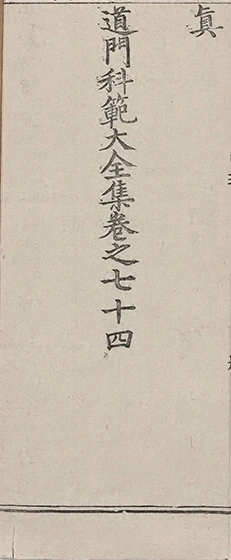 眞
道門科範大全集卷之七十四